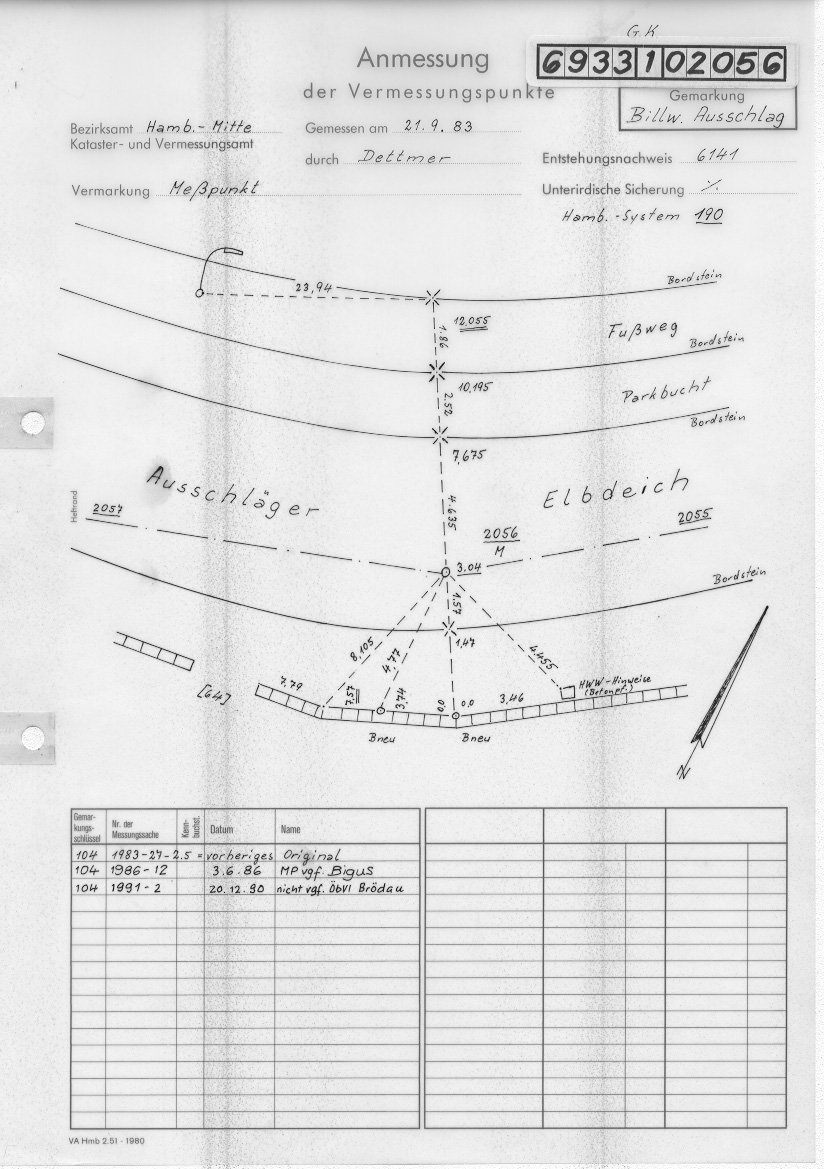 G.K
Anmessung
6933102056
der Vermessungspunkte
Gemarkung
Billw. Ausschlag
Bezirksamt Hamb.-Mitte
Gemessen am 21.9.83
Kataster- und Vermessungsamt
durch Dettmer
Entstehungsnachweis 6141
Vermarkung Meßpunkt
Unterirdische Sicherung ⁒
Hamb.-System 190
Bordstein
23,94
12,055
1.86
Fußweg
Bordstein
10,195
Parkbucht
2.52
Bordstein
7,675
Ausschläger
Elbdeich
Heftrand
4.635
2057
2055
2056
M
3.04
Bordstein
1.57
1,47
8,105
4,77
4.455
[64]
7.79
7.57
3,74
0,0
0,0
3,46
HWW-Hinweise
(Betonpf.)
Bneu
Bneu
N
Gemar-
kungs-
schlüssel
Nr. der
Messungssache
Kenn-
buchst.
Datum
Name
104 1983-27-2.5 = vorheriges Original
104 1986-12 3.6.86 MP vgf. Bigus
104 1991-2 20.12.90 nicht vgf. ÖbVI Brödau
VA Hmb 2.51 · 1980